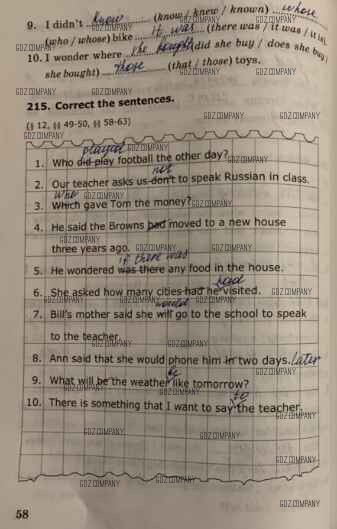 9. I didn't know (know / knew / known) whose
(who / whose) bike it was (there was / it was / it is).
10. I wonder where she bought (did she buy / does she buy
she bought) those (that / those) toys.
215. Correct the sentences.
(§ 12, §§ 49-50, §§ 58-63)
played
1. Who did play football the other day?
not
2. Our teacher asks us don't to speak Russian in class.
Who
3. Which gave Tom the money?
4. He said the Browns had moved to a new house
three years ago.
if there was
5. He wondered was there any food in the house.
had
6. She asked how many cities had he visited.
would
7. Bill's mother said she will go to the school to speak
to the teacher.
8. Ann said that she would phone him in two days. later
be
9. What will be the weather like tomorrow?
to
10. There is something that I want to say the teacher.
58
GDZ.COMPANY